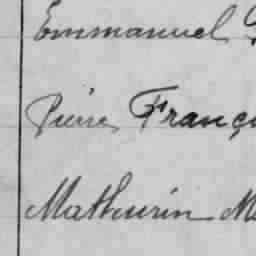 Emmanuel
Pierre Franç
Mathurin M